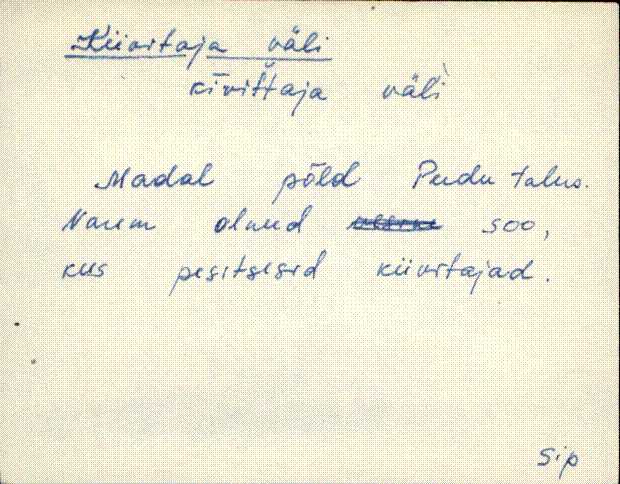 Kiivitaja väli
kīviťťaja väĺi
Madal põld Peedu talus.
Varem olnud soo,
kus pesitsesid kiivitajad.
Sip